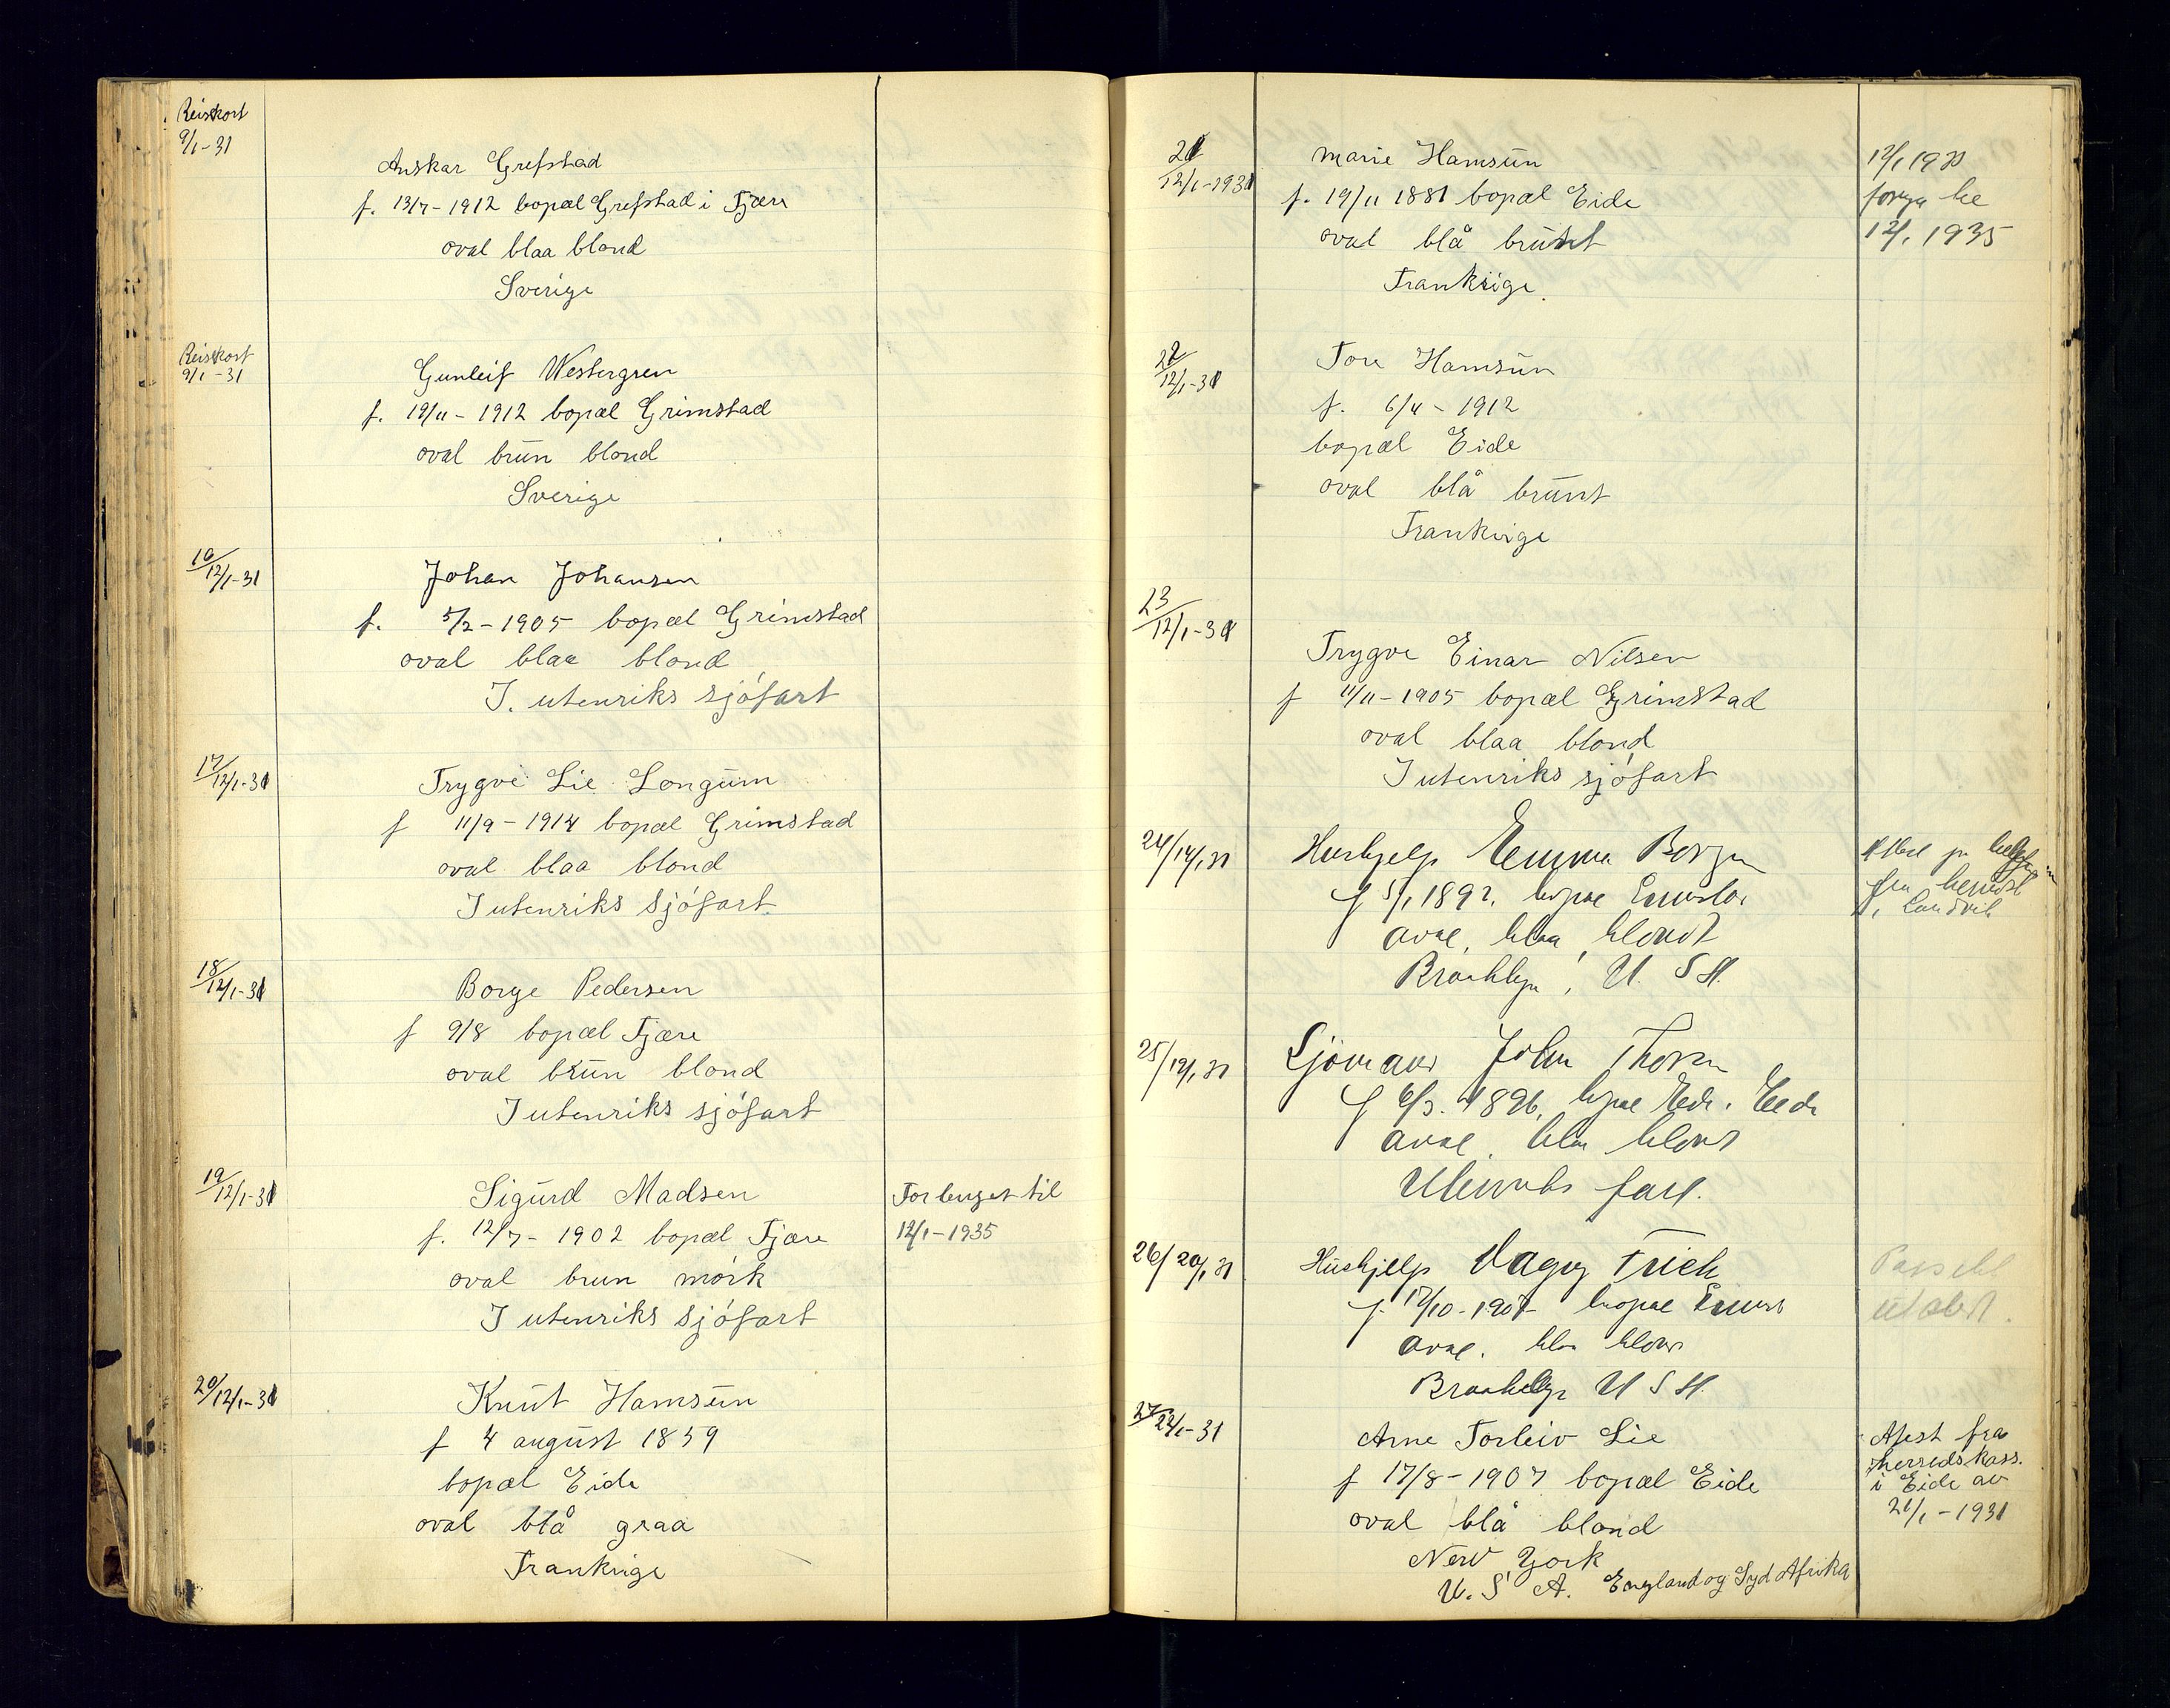 Reisekort
9/1-31
Anskar Grefstad
f. 13/7-1912 bopæl Grefstad i Fjære
oval blaa blond
Sverige
Reisekort
9/1-31
Gunleif Westergren
f. 19/11-1912 bopæl Grimstad
oval brun blond
Sverige
16/12/1-31
Johan Johansen
f. 5/2-1905 bopæl Grimstad
oval blaa blond
I. utenriks sjøfart
17/12/1-31
Trygve Lie Longum
f 11/9-1914 bopæl Grimstad
oval blaa blond
I utenriks sjøfart
18/12/1-31
Borge Pedersen
f 9/8 bopæl Fjære
oval brun blond
I utenriks sjøfart
19/12/1-31
Sigurd Madsen
f. 12/7-1902 bopæl Fjære
oval brun mørk
I utenriks sjøfart
Forlenget til
12/1-1935
20/12/1-31
Knut Hamsun
f 4 august 1859
bopæl Eide
oval blå graa
Frankrige
21
12/1-1931
Marie Hamsun
f. 19/11 1881 bopæl Eide
oval blå brunt
Frankrige.
12/1 1935
22/12/1-31
Tore Hamsun
f. 6/4-1912
bopæl Eide
oval blå brunt
Frankrige
23/12/1-31
Trygve Einar Nilsen
f 11/11-1905 bopæl Grimstad
oval blaa blond
I utenriks sjøfart
24/14/1 31
Hushjelp Emma
f 5/1 1892. bopæl
oval, blaa blondt
Brooklyn, U. S A.
i Landvik
25/19/1 31
Sjømann John Thorsen
f 6/3. 1896, bopæl Eide. Eide
oval. blaa blond
Utenriks fart.
26/20/1 31
Hushjelp Dagny
f. 17/10-1907 bopæl
oval. blaa blond
Brooklyn U S A.
Pass ikke
utløst.
27/22/1-31
Arne Torleiv Lie
f 17/8-1907 bopæl Eide
oval blå blond
New York
U. S. A. England og Syd Afrika
Atest fra
herredskass.
i Eide av
21/1-1931